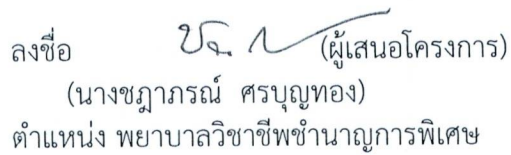 ลงชื่อ (ผู้เสนอโครงการ)
(นางชฎาภรณ์ ศรบุญทอง)
ตำแหน่ง พยาบาลวิชาชีพชำนาญการพิเศษ